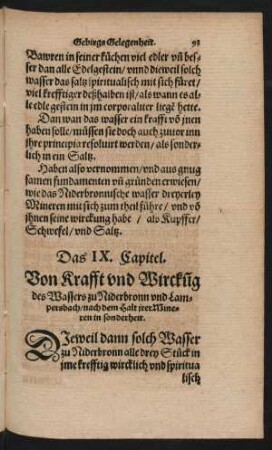 Gebirgs Gelegenheit. 98
Bawren in seiner küchen viel edler vñ bes-
ser dan alle Edelgestein / vnnd dieweil solch
wasser das saltz spiritualisch mit sich füret /
viel krefftiger deßhalben ist / als wann es al-
le edle gestein in jm corporaliter liege hette.
Dan wan das wasser ein krafft võ jnen
haben solle / müssen sie doch auch zuuor inn
jhre principia resoluirt werden / als sonder-
lich in ein Saltz.
Haben also vernommen / vnd aus gnug
samen fundamenten vñ gründen erwiesen /
wie das Niderbronnische wasser dreyerley
Mineren mit sich zum theil führe / vnd võ
jhnen seine wirckung habe / als Kupffer /
Schwefel / vnd Saltz.
Das IX. Capitel.
Von Krafft vnd Wirckũg
des Wassers zu Niderbronn vnd Lam-
persbach / nach dem Halt jrer Mine-
ren in sonderheit.
DJeweil dann solch Wasser
zu Niderbronn alle drey Stück in
jme krefftig wircklich vnd spiritua
lisch